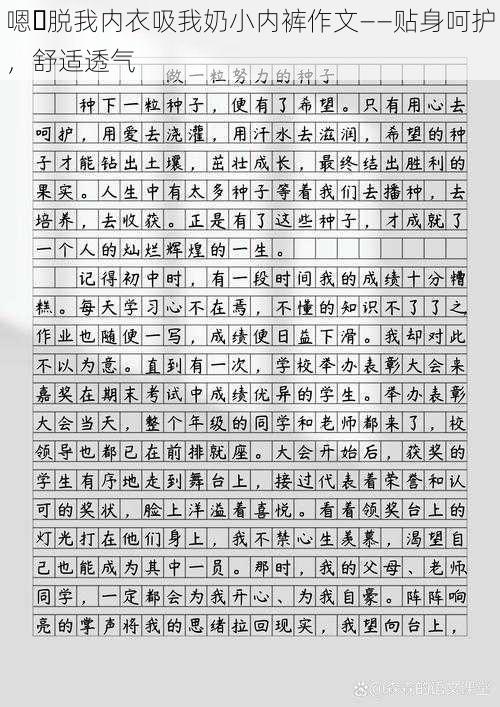 嗯▯脱我内衣吸我奶小内裤作文——贴身呵护
，舒适透气
做一粒努力的种子
种下一粒种子，便有了希望。只有用心去
呵护，用爱去浇灌，用汗水去滋润，希望的种
子才能钻出土壤，茁壮成长，最终结出胜利的
果实。人生中有太多种子等着我们去播种，去
培养，去收获。正是有了这些种子，才成就了
一个人的灿烂辉煌的一生。
记得初中时，有一段时间我的成绩十分糟
糕。每天学习心不在焉，不懂的知识不了了之
作业也随便一写，成绩便日益下滑。我却对此
不以为意。直到有一次，学校举办表彰大会来
嘉奖在期末考试中成绩优异的学生。举办表彰
大会当天，整个年级的同学和老师都来了，校
领导也都已在前排就座。大会开始后，获奖的
学生有序地走到舞台上，接过代表着荣誉和认
可的奖状，脸上洋溢着喜悦。看着领奖台上的
灯光打在他们身上，我不禁心生羡慕，渴望自
己也能成为其中一员。那时，我的父母、老师
同学，一定都会为我开心、为我自豪。阵阵响
亮的掌声将我的思绪拉回现实，我望向台上，